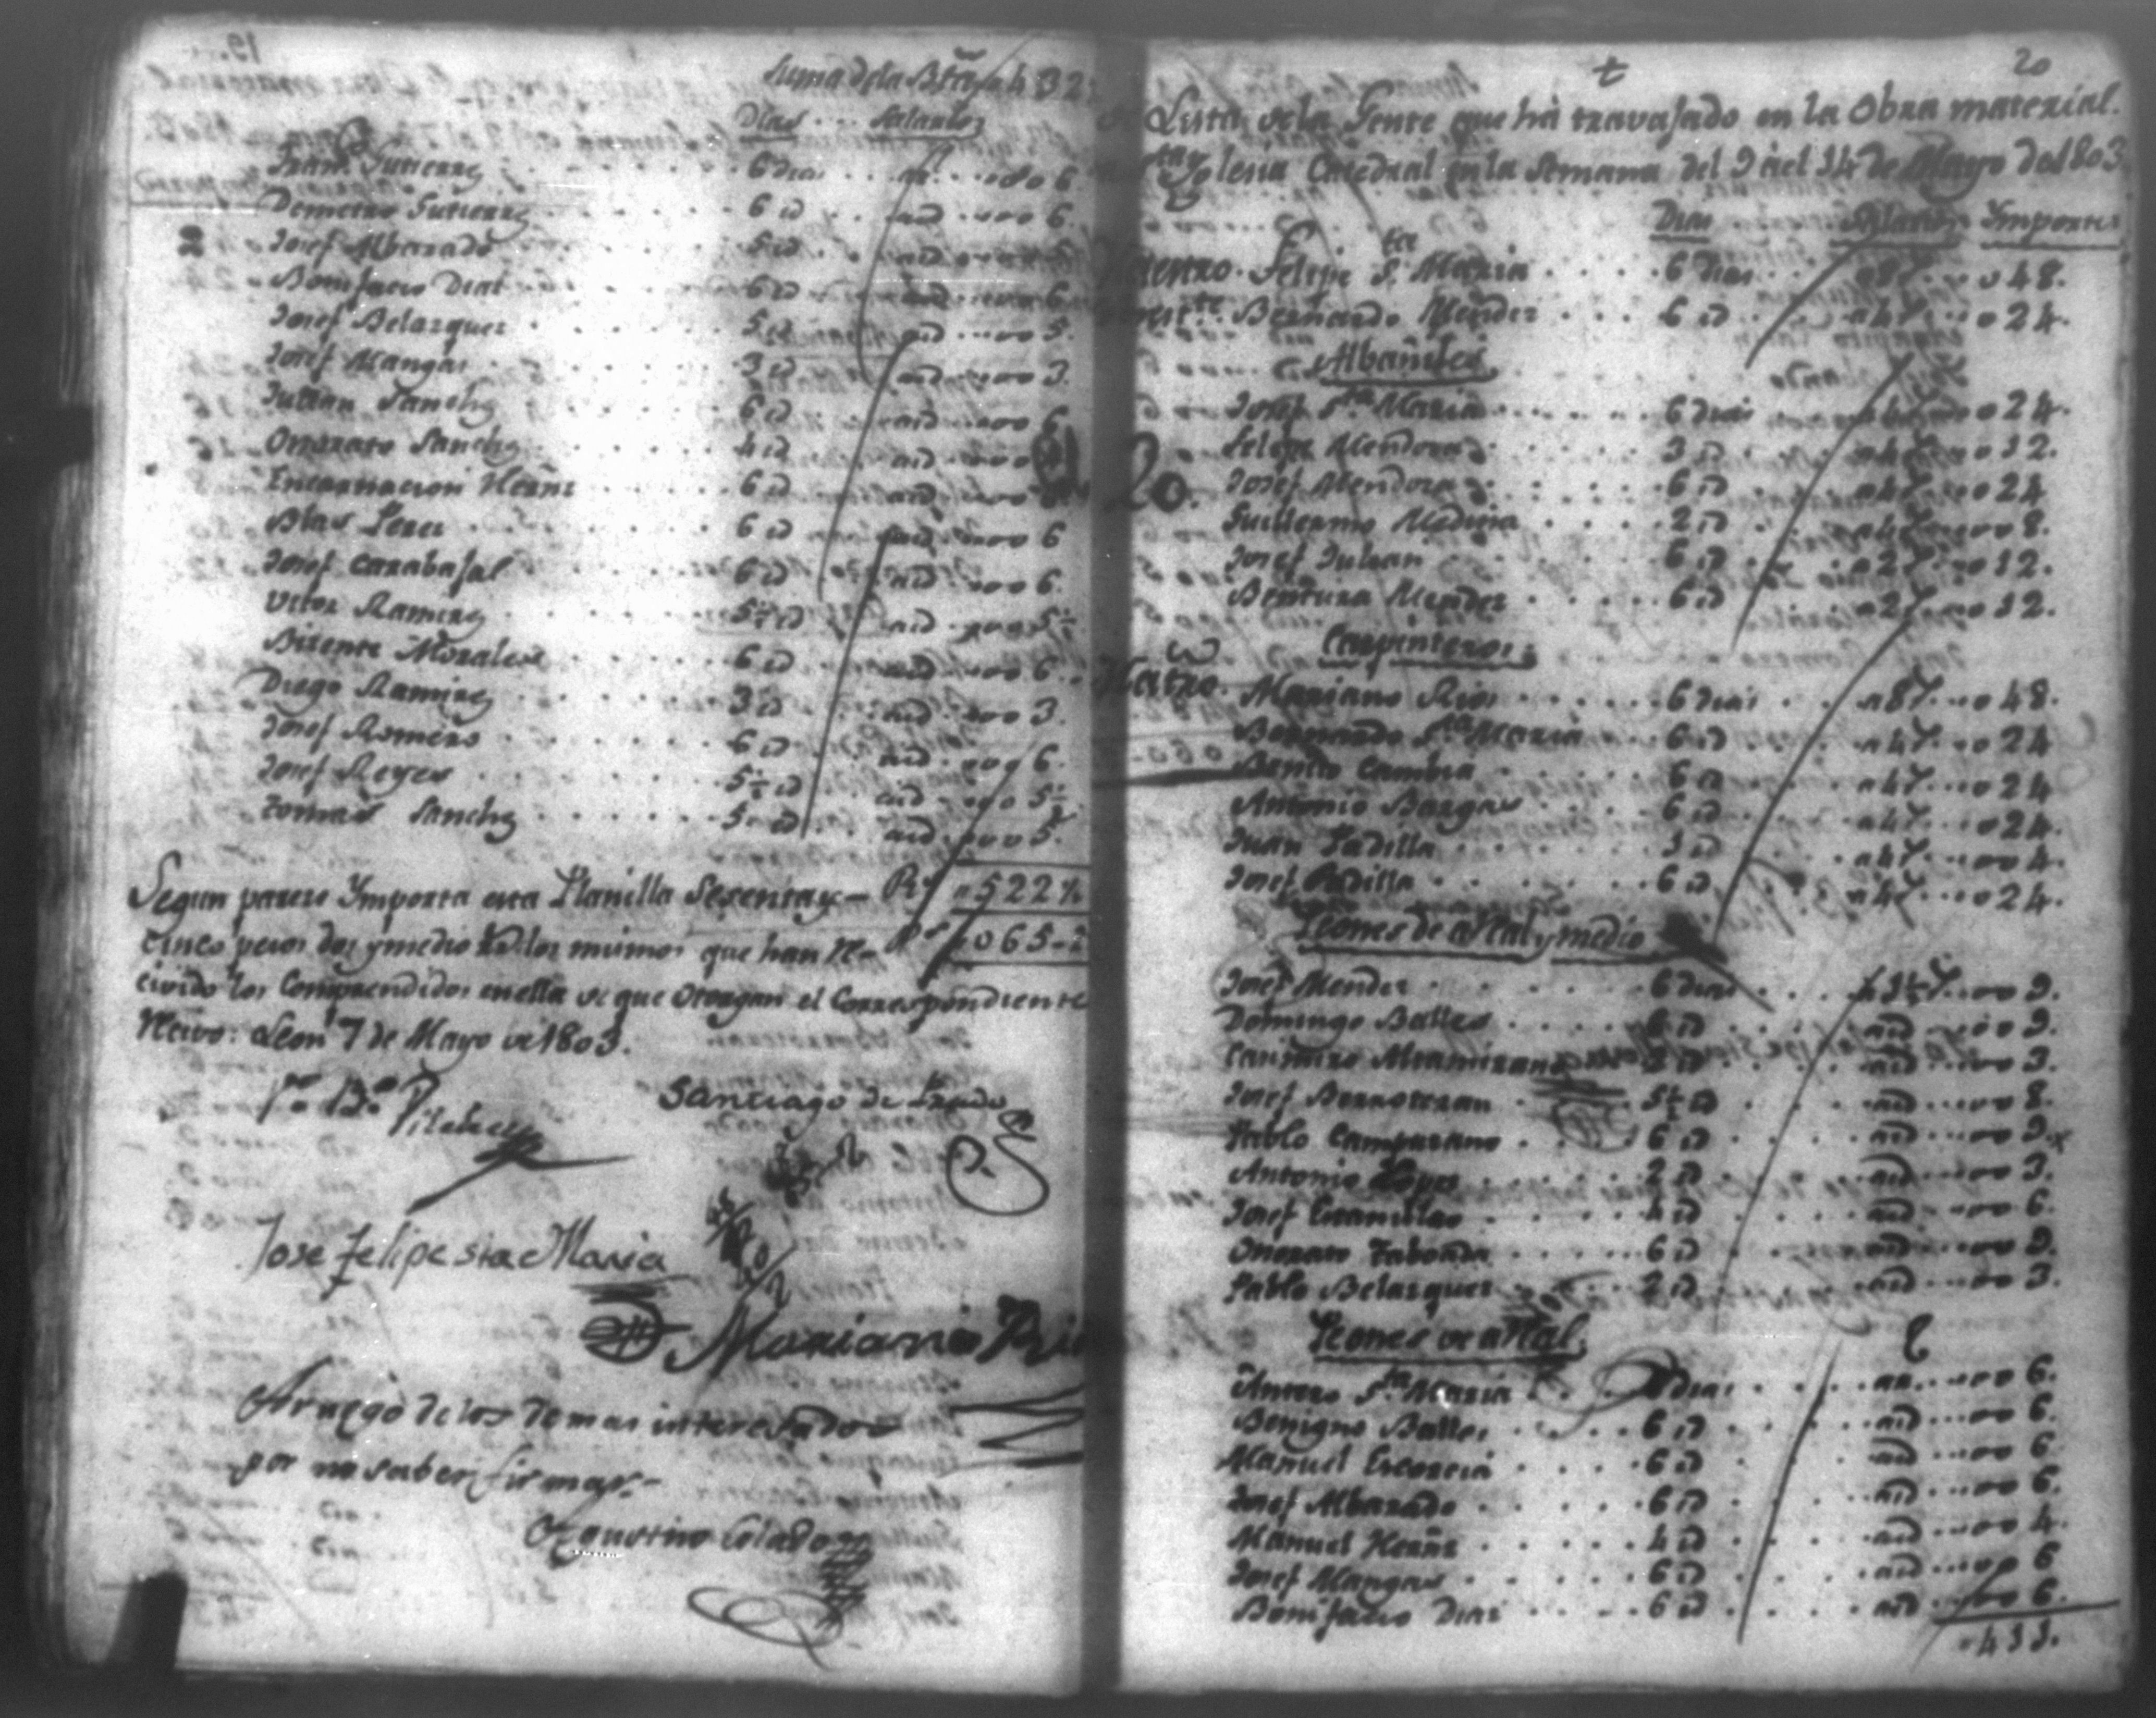 Suma de la Bta. 432
Dias Salarios
Franco. Gutierrez 6 dias a 1. 006
Demetrio Gutierrez 6 id id 006.
Josef Albarado 5 id id 005
Bonifacio Dias 6 id id 006
Josef Belazquez 5 id id 005.
Josef Mangas 3 id id 003.
Julian Sanchez 6 id id 006
Onorato Sanchez 4 id id
Encarnacion Hernz 6 id id
Blas Perez 6 id id 006
Josef Carabajal 6 id id 006.
Vitor Ramirez 5½ id id 005½
Bisente Morales 6 id id 006.
Diego Ramirez 3 id id 003.
Josef Romero 6 id id 006.
Josef Reyes 5½ id id 005½
Tomas Sanchez 5 id id 005.
Segun parece Ymporta esta Planilla Sesentay- Rs 522½
cinco pesos dos y medio rs. los mismos que han Re- Ps 065-2
civido los Comprendidos en ella de que Otorgan el Correspondiente
Recivo: Leon 7 de Mayo de 1803.
Vo. Bo. Vilches
Santiago de Prado
Jose Felipe sta Maria
Mariano Rio
A ruego de los demas interesados
por no saber firmar.-
Agustino Colado
20
Lista de la Gente que há travajado en la Obra material.
Yglecia Catedral en la Semana del 9 àel 14 de Mayo de 1803
Dias Salarios Ymportes
Felipe Sta. Maria 6 dias a 8 r 048.
Bernardo Mendez 6 id a 4 r 024.
Albañiles
Josef Sta. Maria 6 dias a 4 r 024.
Felipe Mendoza 3 id a 4 r 012.
Josef Mendoza 6 id a 4 r 024
Guillermo Medina 2 id a 4 r 008.
Josef Julian 6 id a 2 r 012.
Bentura Mendez 6 id a 2 r 012.
Carpinteros
Maestro. Mariano Rios 6 dias a 8 r 048.
Bernardo Sta Maria 6 id a 4 r 024
Benito Cambia 6 id a 4 r 024
Antonio Bargas 6 id a 4 r 024.
Juan Padilla 1 id a 4 r 004.
Josef Padilla 6 id a 4 r 024.
Peones de a Real y medio
Josef Mendez 6 dias a 1½ r 009.
Domingo Balles 6 id id 009.
Casimiro Altamirano 2 id id 003.
Josef Berroteran 5½ id id 008.
Pablo Campusano 6 id id 009.
Antonio Lopez 2 id id 003.
Josef Granillo 4 id id 006.
Onorato Taboada 6 id id 009.
Pablo Belazquez 2 id id 003.
Peones de a Real
Antero Sta. Maria 6 dias a 1. 006.
Benigno Balles 6 id id 006.
Manuel Escorcia 6 id id 006.
Josef Albarado 6 id id 006.
Manuel Hernz 4 id id 004.
Josef Mangas 6 id id 006
Bonifacio Dias 6 id id 006.
433.